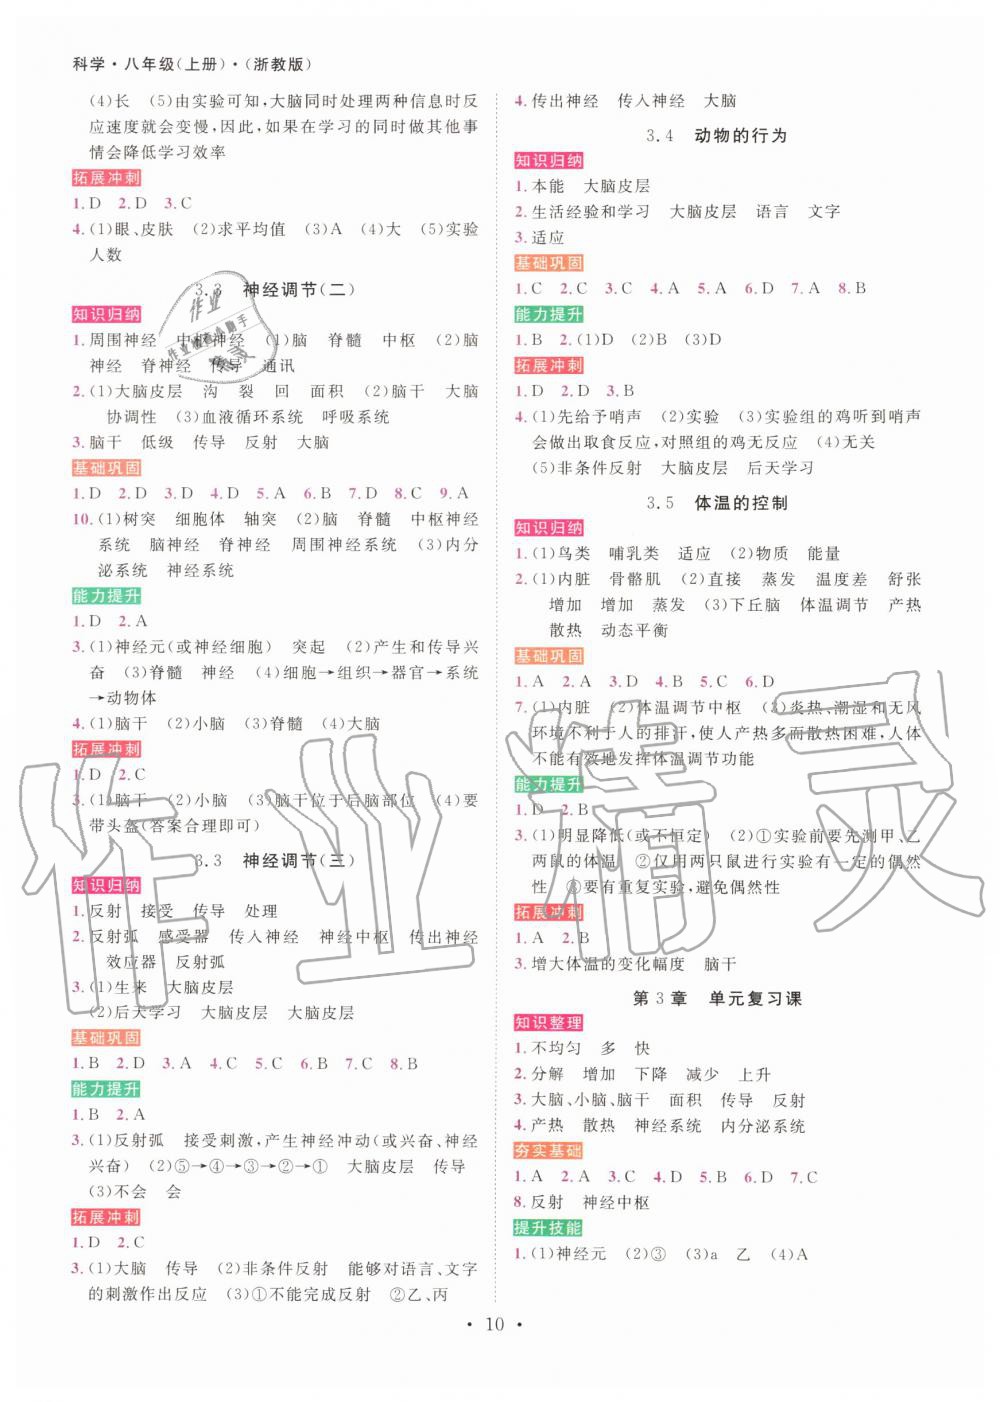 科学·八年级(上册)·(浙教版)
(4)长　(5)由实验可知,大脑同时处理两种信息时反
应速度就会变慢,因此,如果在学习的同时做其他事
情会降低学习效率
拓展冲刺
1.D　2.D　3.C
4.(1)眼、皮肤　(2)求平均值　(3)A　(4)大　(5)实验
人数
3.3　神经调节(二)
知识归纳
1.周围神经　中枢神经　(1)脑　脊髓　中枢　(2)脑
神经　脊神经　传导　通讯
2.(1)大脑皮层　沟　裂　回　面积　(2)脑干　大脑
协调性　(3)血液循环系统　呼吸系统
3.脑干　低级　传导　反射　大脑
基础巩固
1.D　2.D　3.D　4.D　5.A　6.B　7.D　8.C　9.A
10.(1)树突　细胞体　轴突　(2)脑　脊髓　中枢神经
系统　脑神经　脊神经　周围神经系统　(3)内分
泌系统　神经系统
能力提升
1.D　2.A
3.(1)神经元(或神经细胞)　突起　(2)产生和传导兴
奋　(3)脊髓　神经　(4)细胞→组织→器官→系统
→动物体
4.(1)脑干　(2)小脑　(3)脊髓　(4)大脑
拓展冲刺
1.D　2.C
3.(1)脑干　(2)小脑　(3)脑干位于后脑部位　(4)要
带头盔(答案合理即可)
3.3　神经调节(三)
知识归纳
1.反射　接受　传导　处理
2.反射弧　感受器　传入神经　神经中枢　传出神经
效应器　反射弧
3.(1)生来　大脑皮层
(2)后天学习　大脑皮层　大脑皮层
基础巩固
1.B　2.D　3.A　4.C　5.C　6.B　7.C　8.B
能力提升
1.B　2.A
3.(1)反射弧　接受刺激,产生神经冲动(或兴奋、神经
兴奋)　(2)⑤→④→③→②→①　大脑皮层　传导
(3)不会　会
拓展冲刺
1.D　2.C
3.(1)大脑　传导　(2)非条件反射　能够对语言、文字
的刺激作出反应　(3)①不能完成反射　②乙、丙
4.传出神经　传入神经　大脑
3.4　动物的行为
知识归纳
1.本能　大脑皮层
2.生活经验和学习　大脑皮层　语言　文字
3.适应
基础巩固
1.C　2.C　3.C　4.A　5.A　6.D　7.A　8.B
能力提升
1.B　2.(1)D　(2)B　(3)D
拓展冲刺
1.D　2.D　3.B
4.(1)先给予哨声　(2)实验　(3)实验组的鸡听到哨声
会做出取食反应,对照组的鸡无反应　(4)无关
(5)非条件反射　大脑皮层　后天学习
3.5　体温的控制
知识归纳
1.(1)鸟类　哺乳类　适应　(2)物质　能量
2.(1)内脏　骨骼肌　(2)直接　蒸发　温度差　舒张
增加　增加　蒸发　(3)下丘脑　体温调节　产热
散热　动态平衡
基础巩固
1.A　2.A　3.D　4.B　5.C　6.D
7.(1)内脏　(2)体温调节中枢　(3)炎热、潮湿和无风
环境不利于人的排汗,使人产热多而散热困难,人体
不能有效地发挥体温调节功能
能力提升
1.D　2.B
3.(1)明显降低(或不恒定)　(2)①实验前要先测甲、乙
两鼠的体温　②仅用两只鼠进行实验有一定的偶然
性　③要有重复实验,避免偶然性
拓展冲刺
1.A　2.B
3.增大体温的变化幅度　脑干
第3章　单元复习课
知识整理
1.不均匀　多　快
2.分解　增加　下降　减少　上升
3.大脑、小脑、脑干　面积　传导　反射
4.产热　散热　神经系统　内分泌系统
夯实基础
1.A　2.A　3.C　4.D　5.B　6.D　7.C
8.反射　神经中枢
提升技能
1.(1)神经元　(2)③　(3)a　乙　(4)A
·10·
作业精灵